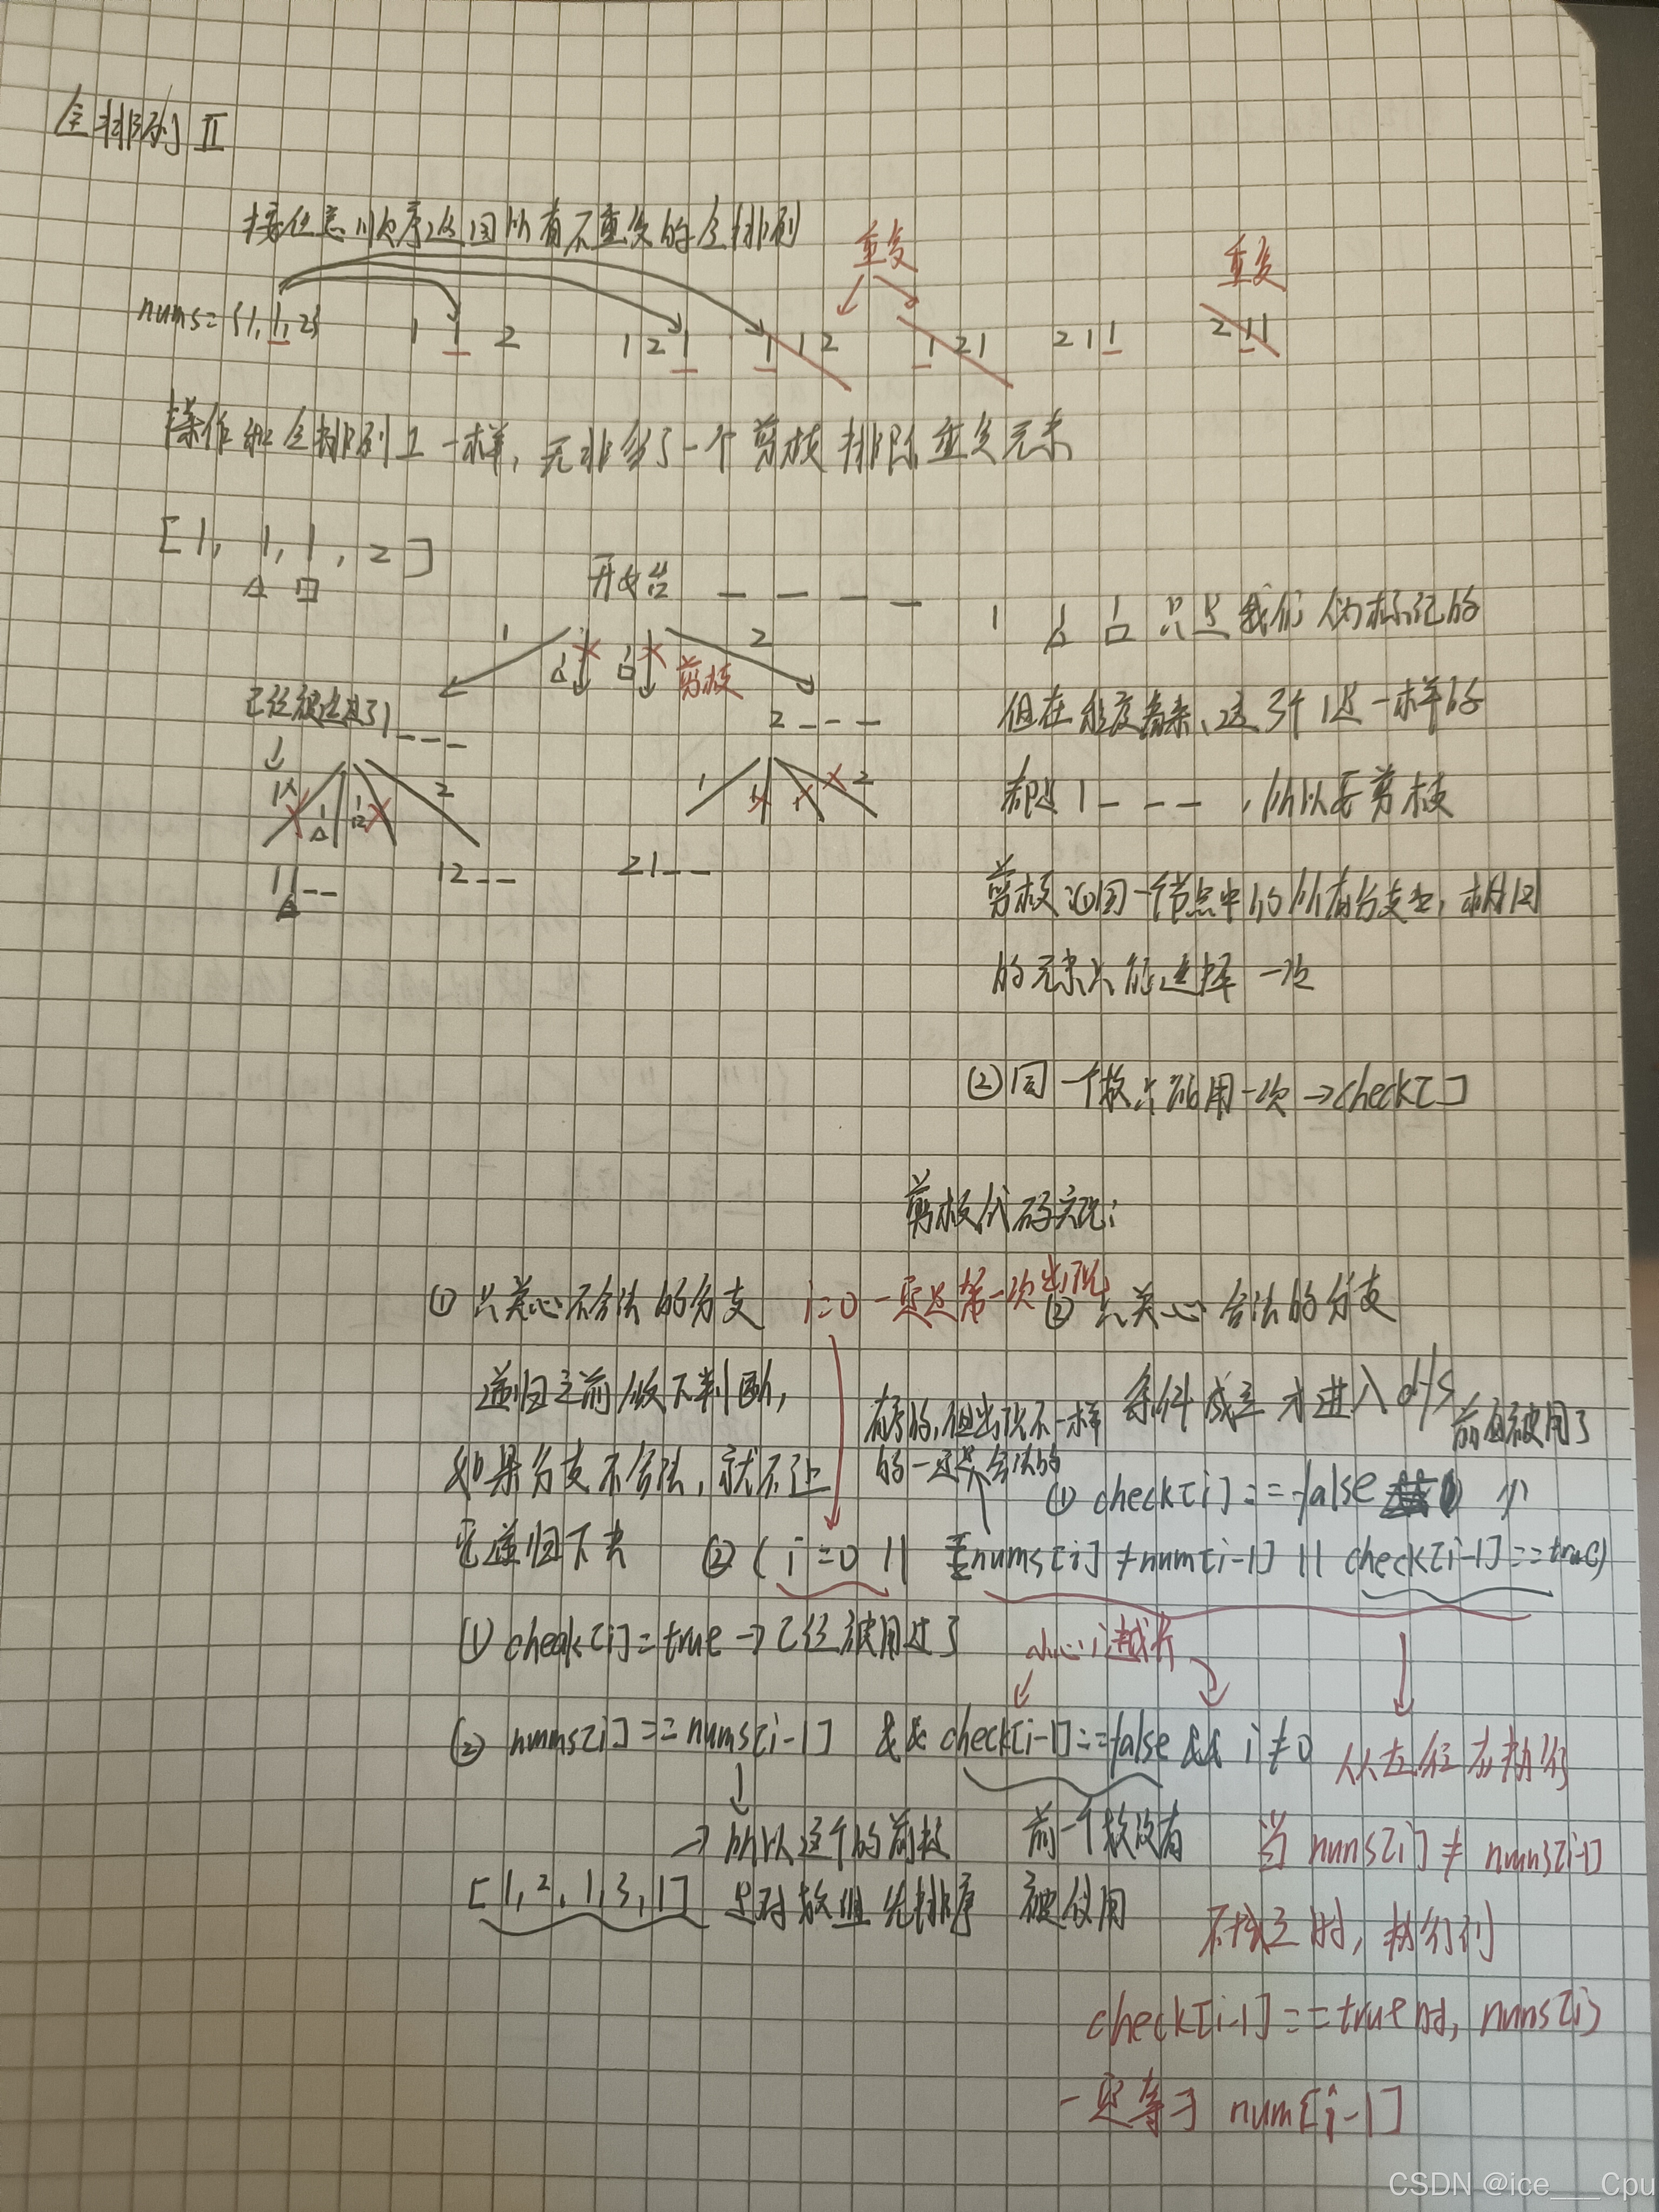 全排列 II
按任意顺序返回所有不重复的全排列
重复
重复
nums={1,1,2}
1 1 2
1 2 1
1 1 2
1 2 1
2 1 1
2 1 1
操作和全排列I一样,无非多了一个剪枝排除重复元素
[1, 1, 1, 2]
△ □
开始 _ _ _ _
1
1△
1□
剪枝
2
已经被选过了1 _ _ _
2 _ _ _
1
1△
1□
2
1
1
1
2
11_ _
△
12_ _
21_ _
1 1△ 1□ 只是我们 标记的
但在 看来,这3个1是一样的
都是1 _ _ _ ,所以要剪枝
剪枝 ①同一个节点中的所有分支中,相同
的元素只能选择一次
②同一个数只能用一次→check[]
剪枝代码实现:
① 只关心不合法的分支
i=0一定是第一次出现
② 只关心合法的分支
递归之前做下判断,
如果分支不合法,就不让
它递归下去
有序的,但出现不一样
的一定是合法的
条件成立才进入dfs
前面被用了
① check[i]==false &&
② (i=0 || nums[i]≠num[i-1] || check[i-1]==true)
① check[i]=true→已经被用过了
小心i越界
② nums[i]==nums[i-1] && check[i-1]==false && i≠0
从左往右执行
→所以这个的前提
是对数组先排序
[1,2,1,3,1]
前一个数没有
被使用
当 nums[i]≠nums[i-1]
不成立时,执行到
check[i-1]==true时, nums[i]
一定等于 num[i-1]
CSDN @ice___Cpu